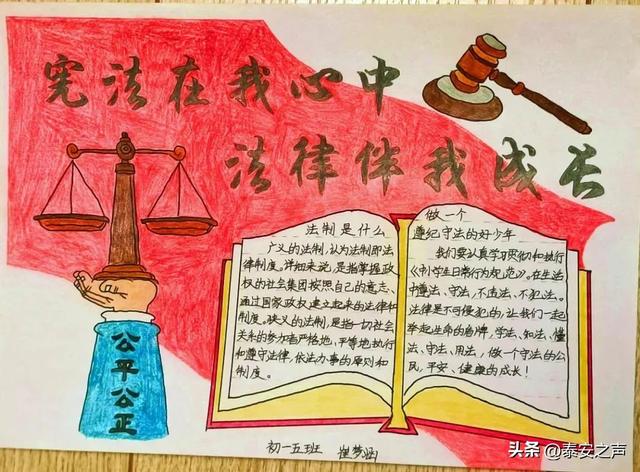 宪法在我心中
法律伴我成长
公平公正
法制是什么
广义的法制,认为法制即法
律制度。详细来说,是指掌握政
权的社会集团按照自己的意志、
通过国家政权建立起来的法律和
制度。狭义的法制,是指一切社会
关系的参与者严格地、平等地执行
和遵守法律,依法办事的原则和
制度。
做一个
遵纪守法的好少年
我们要认真学习贯彻和执行
《中小学生日常行为规范》。在生活
中遵法、守法,不违法、不犯法。
法律是不可侵犯的,让我们一起
举起生命的盾牌,学法、知法、懂
法、守法、用法,做一个守法的公
民,平安、健康的成长!
初一五班 崔梦涵
头条@泰安之声